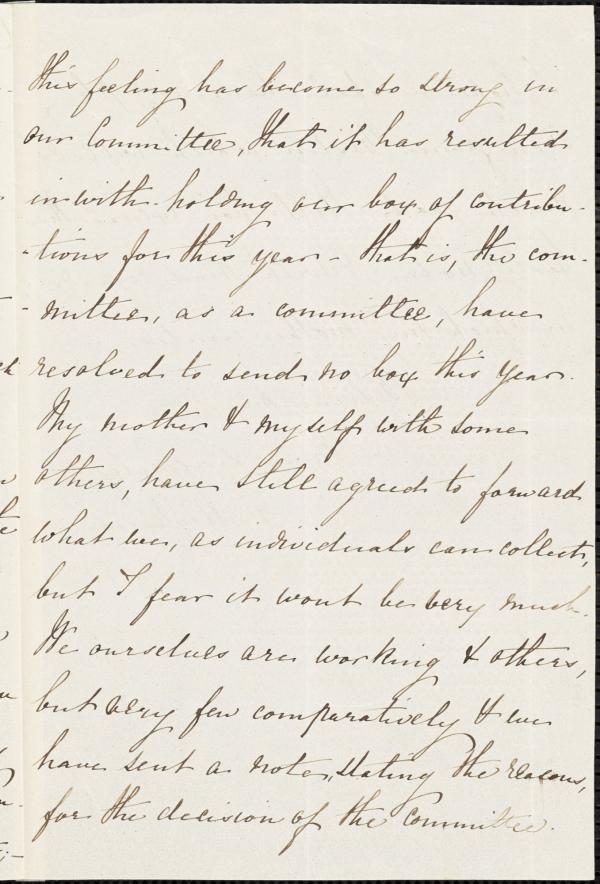 this feeling has become so strong in
our Committee, that it has resulted
in with-holding our box of contribu-
-tions for this year - that is, the com-
mittee, as a committee, have
resolved to send no box this year.
My mother & myself with some
others, have still agreed to forward
what we, as individuals can collect,
but I fear it wont be very much.
We ourselves are working & others,
but very few comparatively & we
have sent a note, stating the reasons,
for the decision of the Committee.